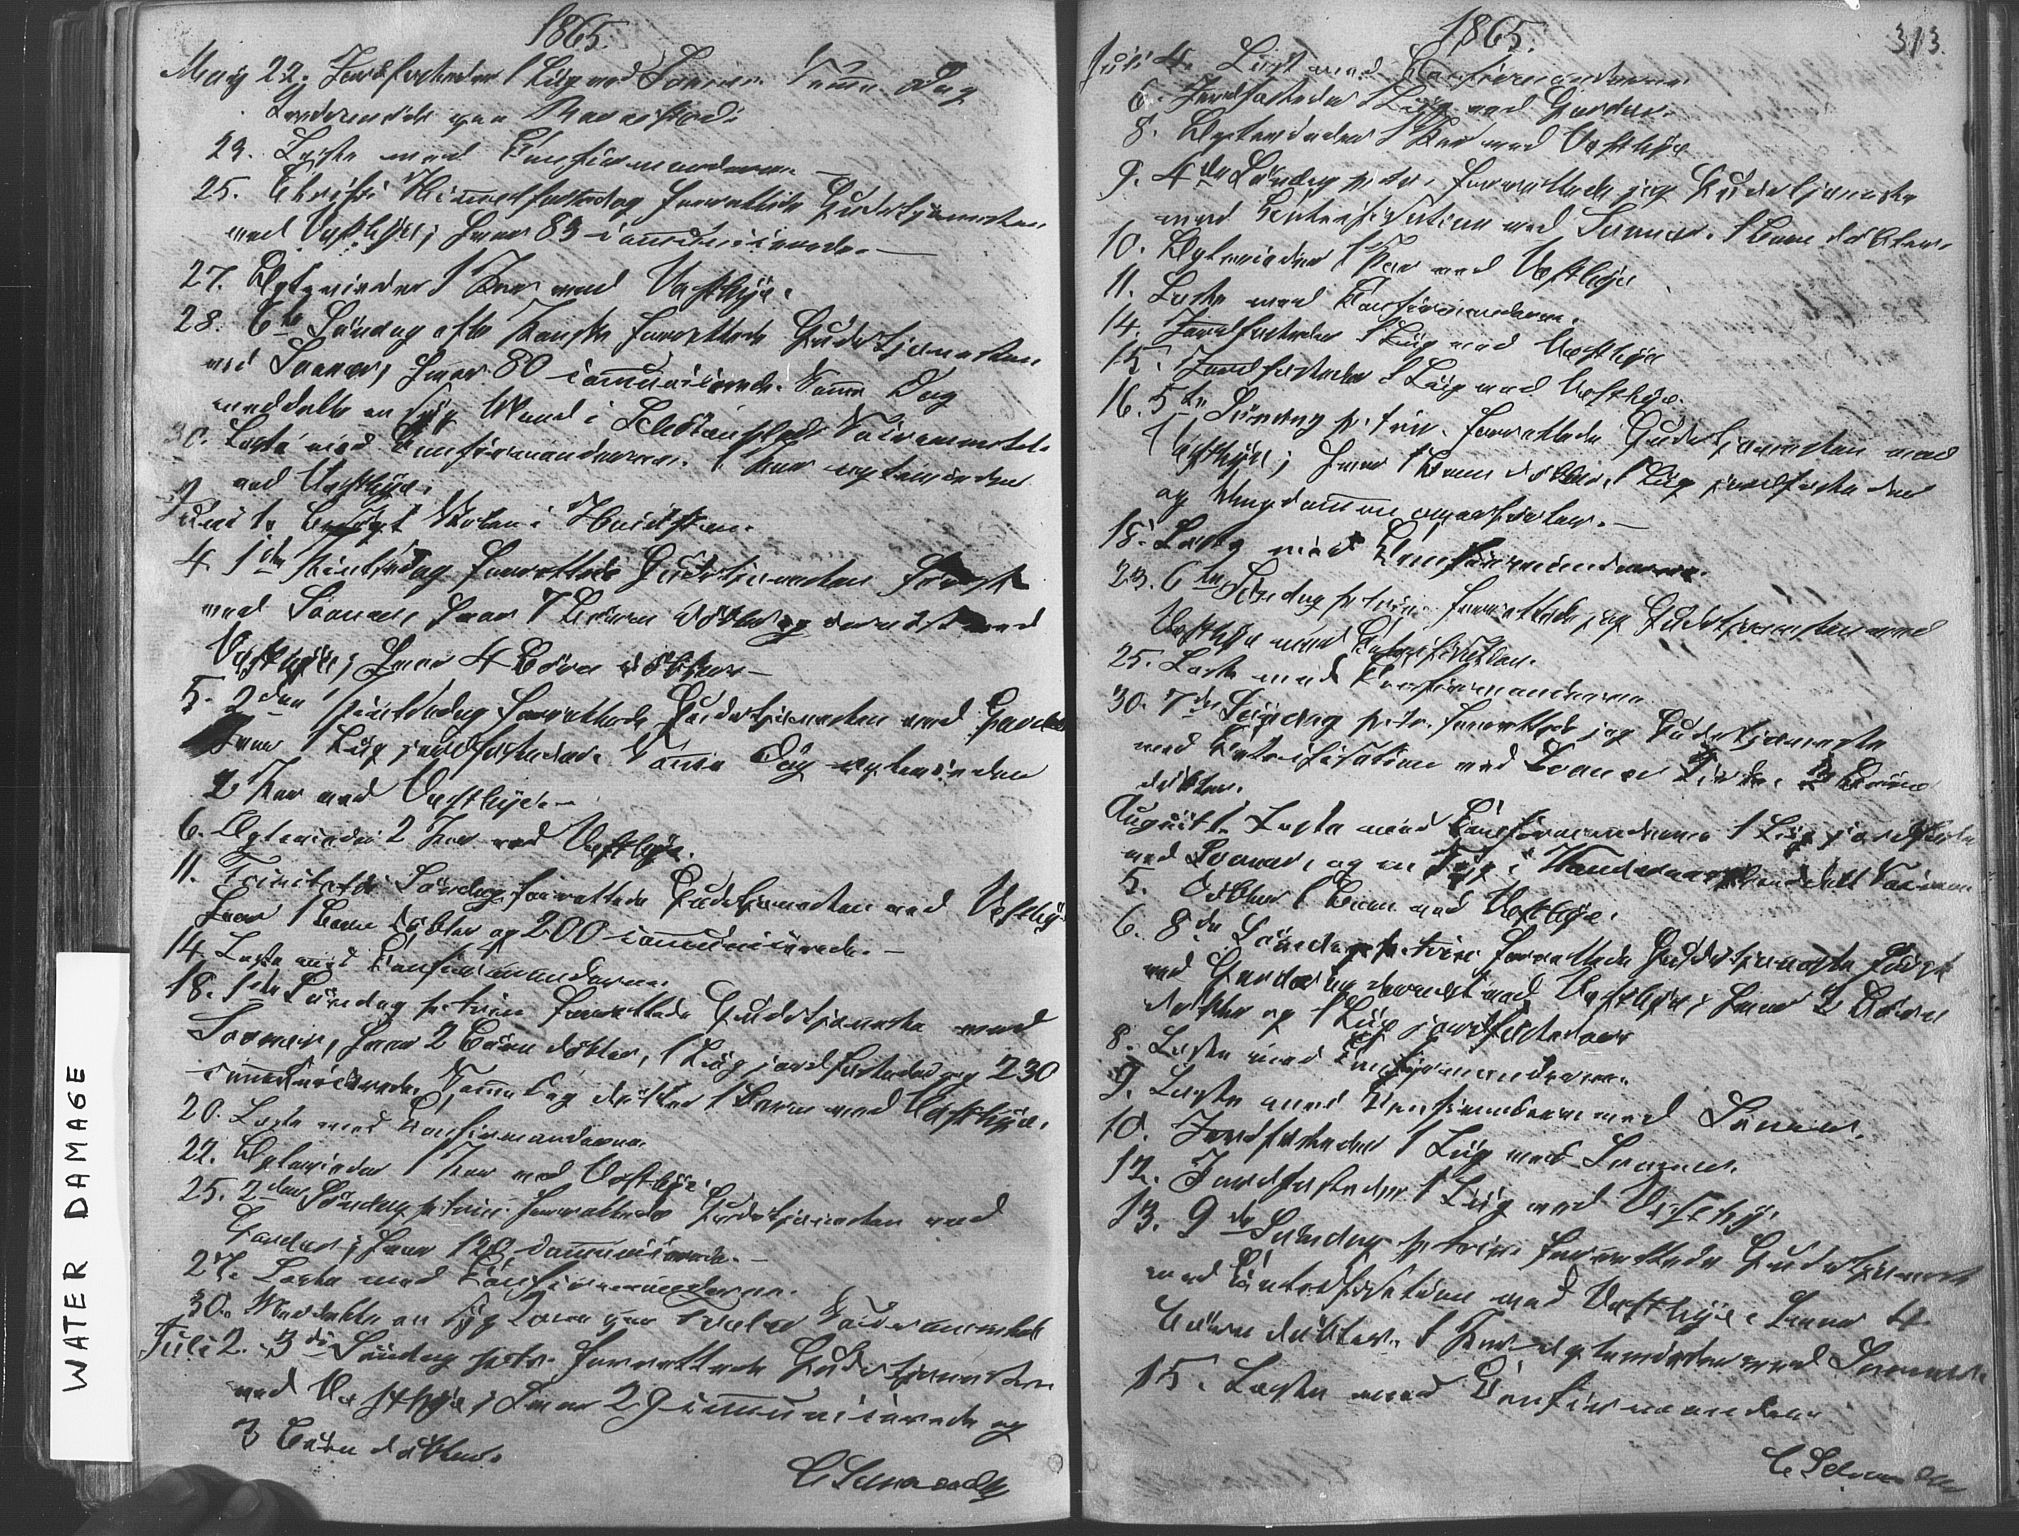 1865.
May 22. Jordfæstedes 1 Liig ved Soner. Samme Dag
29. Læste med Confirmanderne. —
25. Christi Himmelfartsdag forrettede Gudstjenesten
ved Vestbye; hvor 83 communicerede. —
27. Egteviedes 1 Par ved Vestbye.
28. 6te Søndag efter Paaske forrettede Gudstjenesten
ved Soner, hvor 80 communicerede. Samme Dag
meddelte en syg Mand i Sacramentet.
30. Læste med Confirmanderne. 1 Par egteviedes
ved Vestbye.
Juni 1. Besøgt Skolen i
4. 1ste Pintsedag forrettede Gudstjenesten først
ved Soner, hvor 7 Børn døbtes og dernæst ved
Vestbye; hvor 4 Børn døbtes —
5. 2den Pintsedag forrettede Gudstjenesten ved Garder
hvor 1 Liig jordfæstedes. Samme Dag egteviedes
2 Par ved Vestbye. —
6. Egteviedes 2 Par ved Vestbye.
11. Trinitatis Søndag forrettede Gudstjenesten ved Vestbye
hvor 1 Barn døbtes og 200 communicerede. —
14. Læste med Confirmanderne.
18. 1ste Søndag p. trin. forrettede Gudstjeneste ved
Soner, hvor 2 Børn døbtes, 1 Liig jordfæstedes og 230
communicerede. Samme Dag døbtes 1 Barn ved Vestbye.
20. Læste med Confirmanderne.
22. Egteviedes 1 Par ved Vestbye.
25. 2den Søndag p. trin. forrettede Gudstjenesten ved
Garder; hvor 120 communicerede. —
27. Læste med Confirmanderne.
30. Meddelte en syg Kone paa Sacramentet
Juli 2. 3die Søndag p. tr. forrettede Gudstjenesten
ved Vestbye; hvor 29 communicerede og
3 Børn døbtes.
1865.
313
Juli 4. Læst med Confirmanderne.
6. Jordfæstedes 1 Liig ved Garder.
8. Egteviedes 1 Par ved Vestbye
9. 4de Søndag p. tr. forrettede jeg Gudstjeneste
med Catechisation ved Soner. 1 Barn døbtes.
10. Egteviedes 1 Par ved Vestbye
11. Læste med Confirmanderne.
14. Jordfæstedes 1 Liig ved Vestbye
15. Jordfæstedes 1 Liig ved Vestbye.
16. 5te Søndag p. trin. forrettede Gudstjenesten ved
Vestbye; hvor 1 Barn døbtes, 1 Liig jordfæstedes
og Ungdommen —
18. Læste med Confirmanderne.
23. 6te Søndag p. trin. forrettede jeg Gudstjenesten ved
Vestbye med Catechisation.
25. Læste med Confirmanderne
30. 7de Søndag p. tr. forrettede jeg Gudstjeneste
med Catechisation ved Soner Kirke. Børn
døbtes.
August 1. Læste med Confirmanderne 1 Liig jordfæstedes
ved Soner, og en Syg i
5. Døbtes 1 Barn ved Vestbye.
6. 8de Søndag p. trin. forrettede Gudstjeneste først
ved Garder og dernæst ved Vestbye; hvor 2 Børn
døbtes og 1 Liig jordfæstedes
8. Læste med Confirmanderne.
9. Læste med Confirmanderne ved Soner.
10. Jordfæstedes 1 Liig ved Soner.
12. Jordfæstedes 1 Liig ved Vestby.
13. 9de Søndag p. trin. forrettede Gudstjeneste
med Catechisation ved Vestbye; hvor 4
Børn døbtes. 1 Par egteviedes ved Soner.
15. Læste med Confirmanderne
WATER DAMAGE